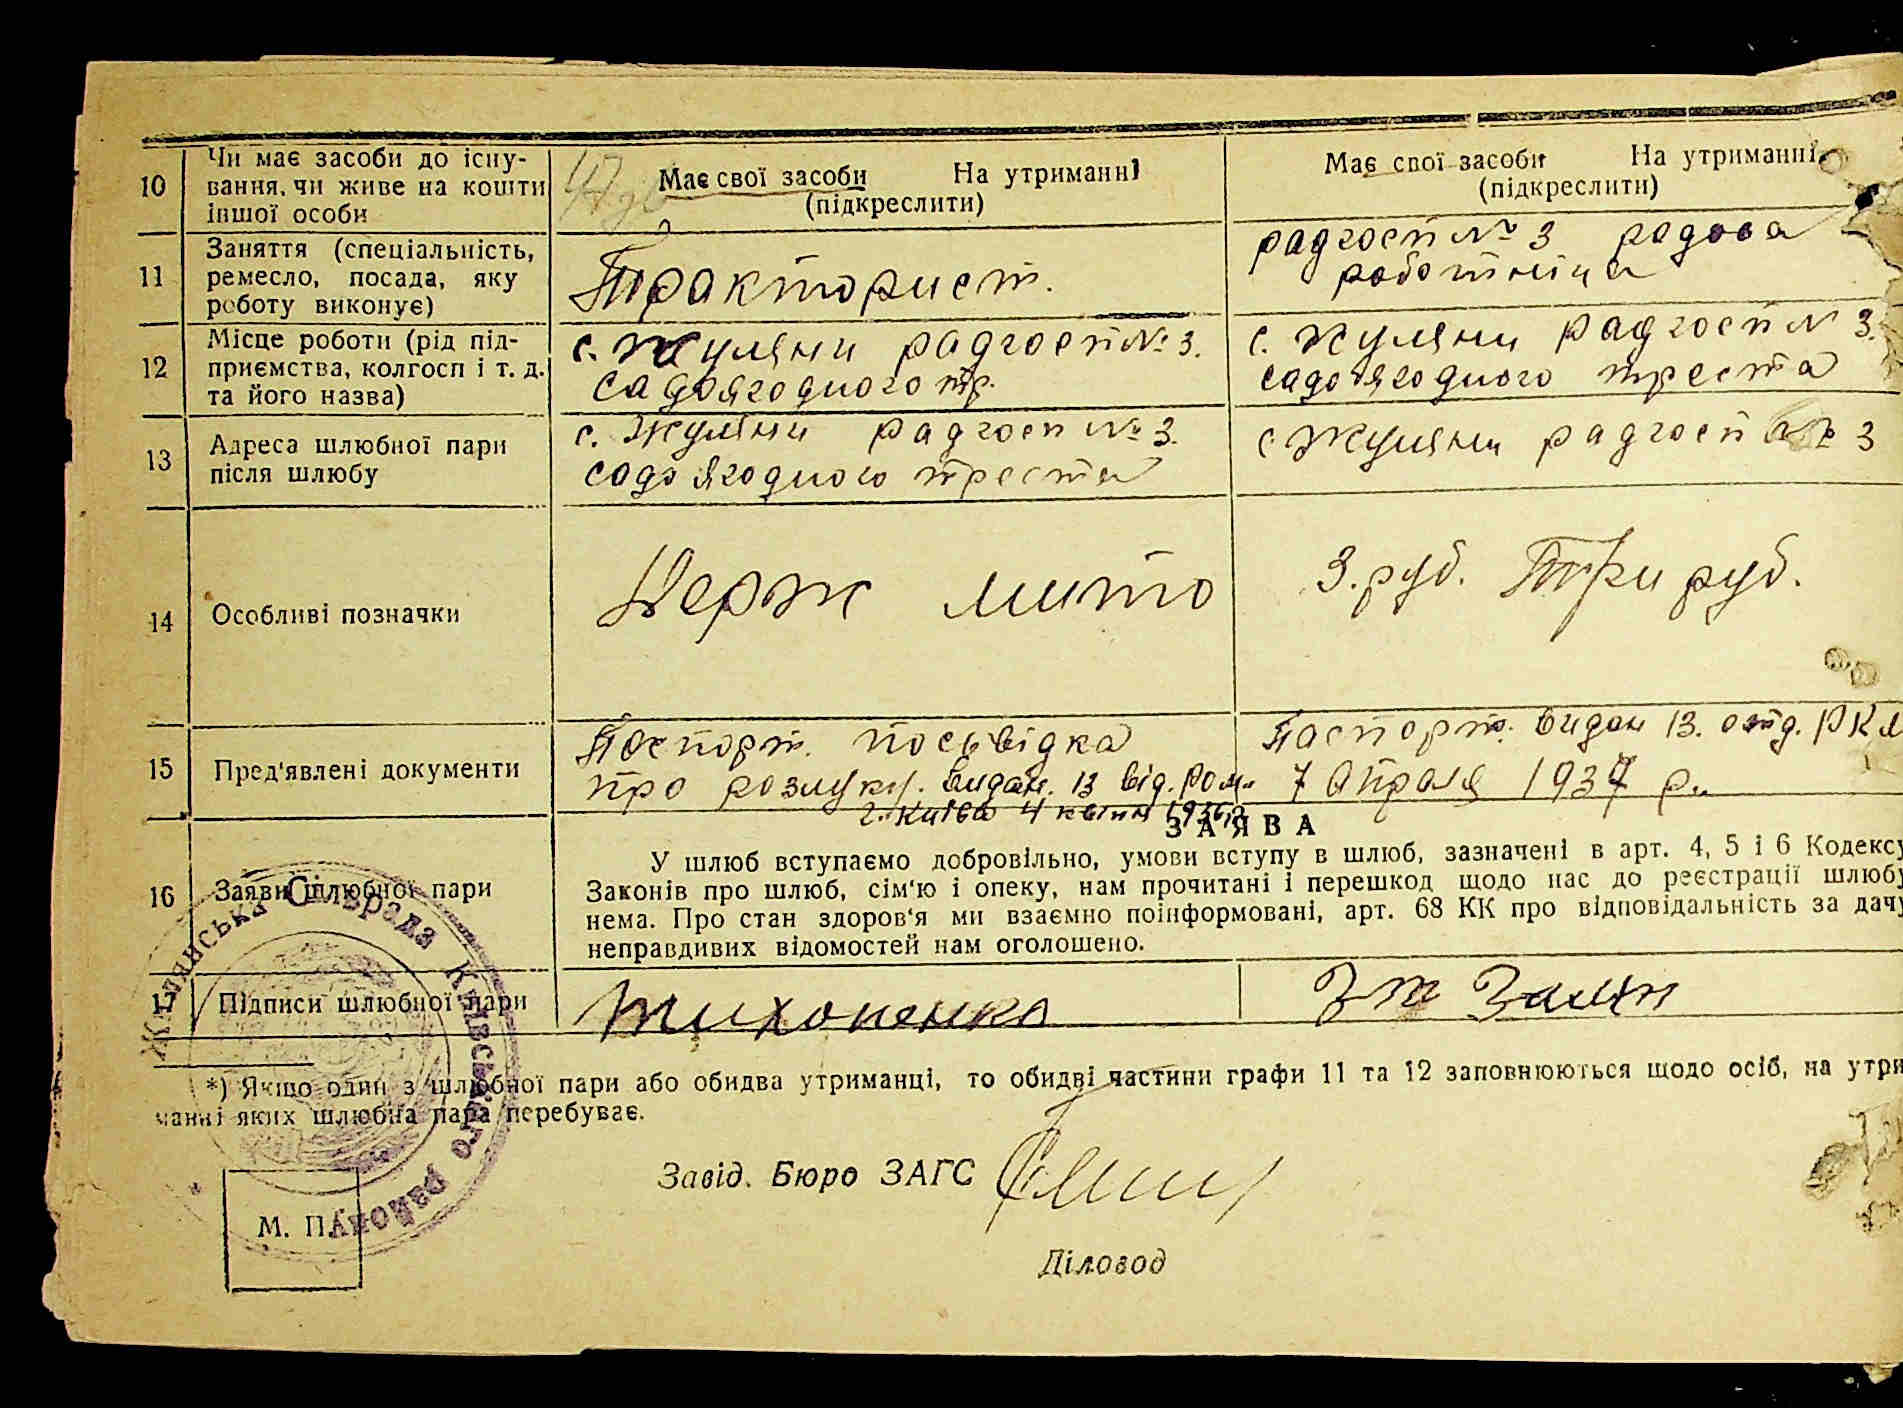 10 Чи має засоби до існу-
вання, чи живе на кошти
іншої особи
Має свої засоби На утриманні
(підкреслити)
Має свої засоби На утриманні
(підкреслити)
11 Заняття (спеціальність,
ремесло, посада, яку
роботу виконує)
Тракторист.
радгосп № 3 родова
работніца
12 Місце роботи (рід під-
приємства, колгосп і т. д.
та його назва)
с. Жуляни радгосп № 3.
садоягодного тр.
с. Жуляни радгосп № 3.
садоягодного треста
13 Адреса шлюбної пари
після шлюбу
с. Жуляни радгосп № 3.
садоягодного треста
с Жуляни радгосп № 3
14 Особливі позначки
Держ мито
3. руб. Три руб.
15 Пред'явлені документи
Поспорт. посьвідка
про розлуку. видан. 13 від. Ром.
г. Київа 4 квітн 1936 р
Паспорт. видан 13. отд. РКМ
7 Апреля 1937 р.
16 Заяви шлюбної пари
ЗАЯВА
У шлюб вступаємо добровільно, умови вступу в шлюб, зазначені в арт. 4, 5 і 6 Кодексу
Законів про шлюб, сім'ю і опеку, нам прочитані і перешкод щодо нас до реєстрації шлюбу
нема. Про стан здоров'я ми взаємно поінформовані, арт. 68 КК про відповідальність за дачу
неправдивих відомостей нам оголошено.
17 Підписи шлюбної пари
Тихоненко
*) Якщо один з шлюбної пари або обидва утриманці, то обидві частини графи 11 та 12 заповнюються щодо осіб, на утри
манні яких шлюбна пара перебуває.
Жулянська Сільрада Київського району
Завід. Бюро ЗАГС
М. П.
Діловод